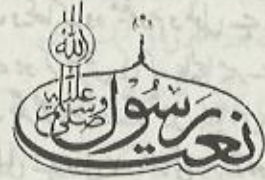 نعت رسول الله صلی اللہ علیہ وسلم